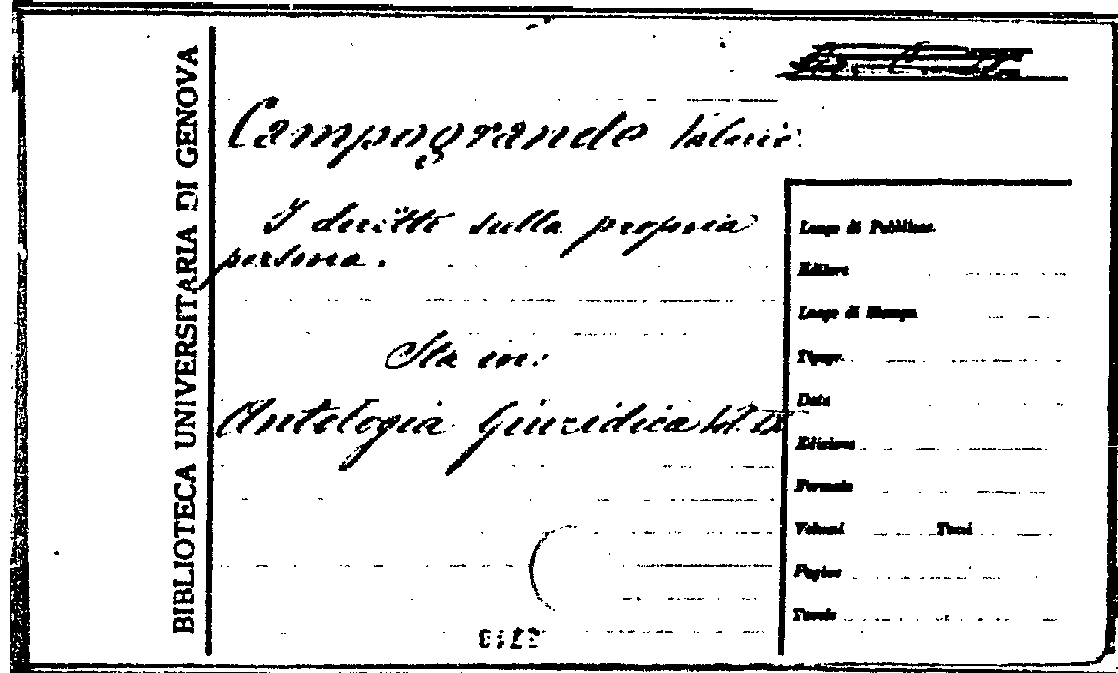 BIBLIOTECA UNIVERSITARIA DI GENOVA
Campogrande Valerio.
I diritti sulla propria
persona.
Sta in:
Antologia Giuridica Vol. IX
Luogo di Pubblicaz.
Editore
Luogo di Stampa
Tipogr.
Data
Edizione
Formato
Volumi Tomi
Pagine
Tavole